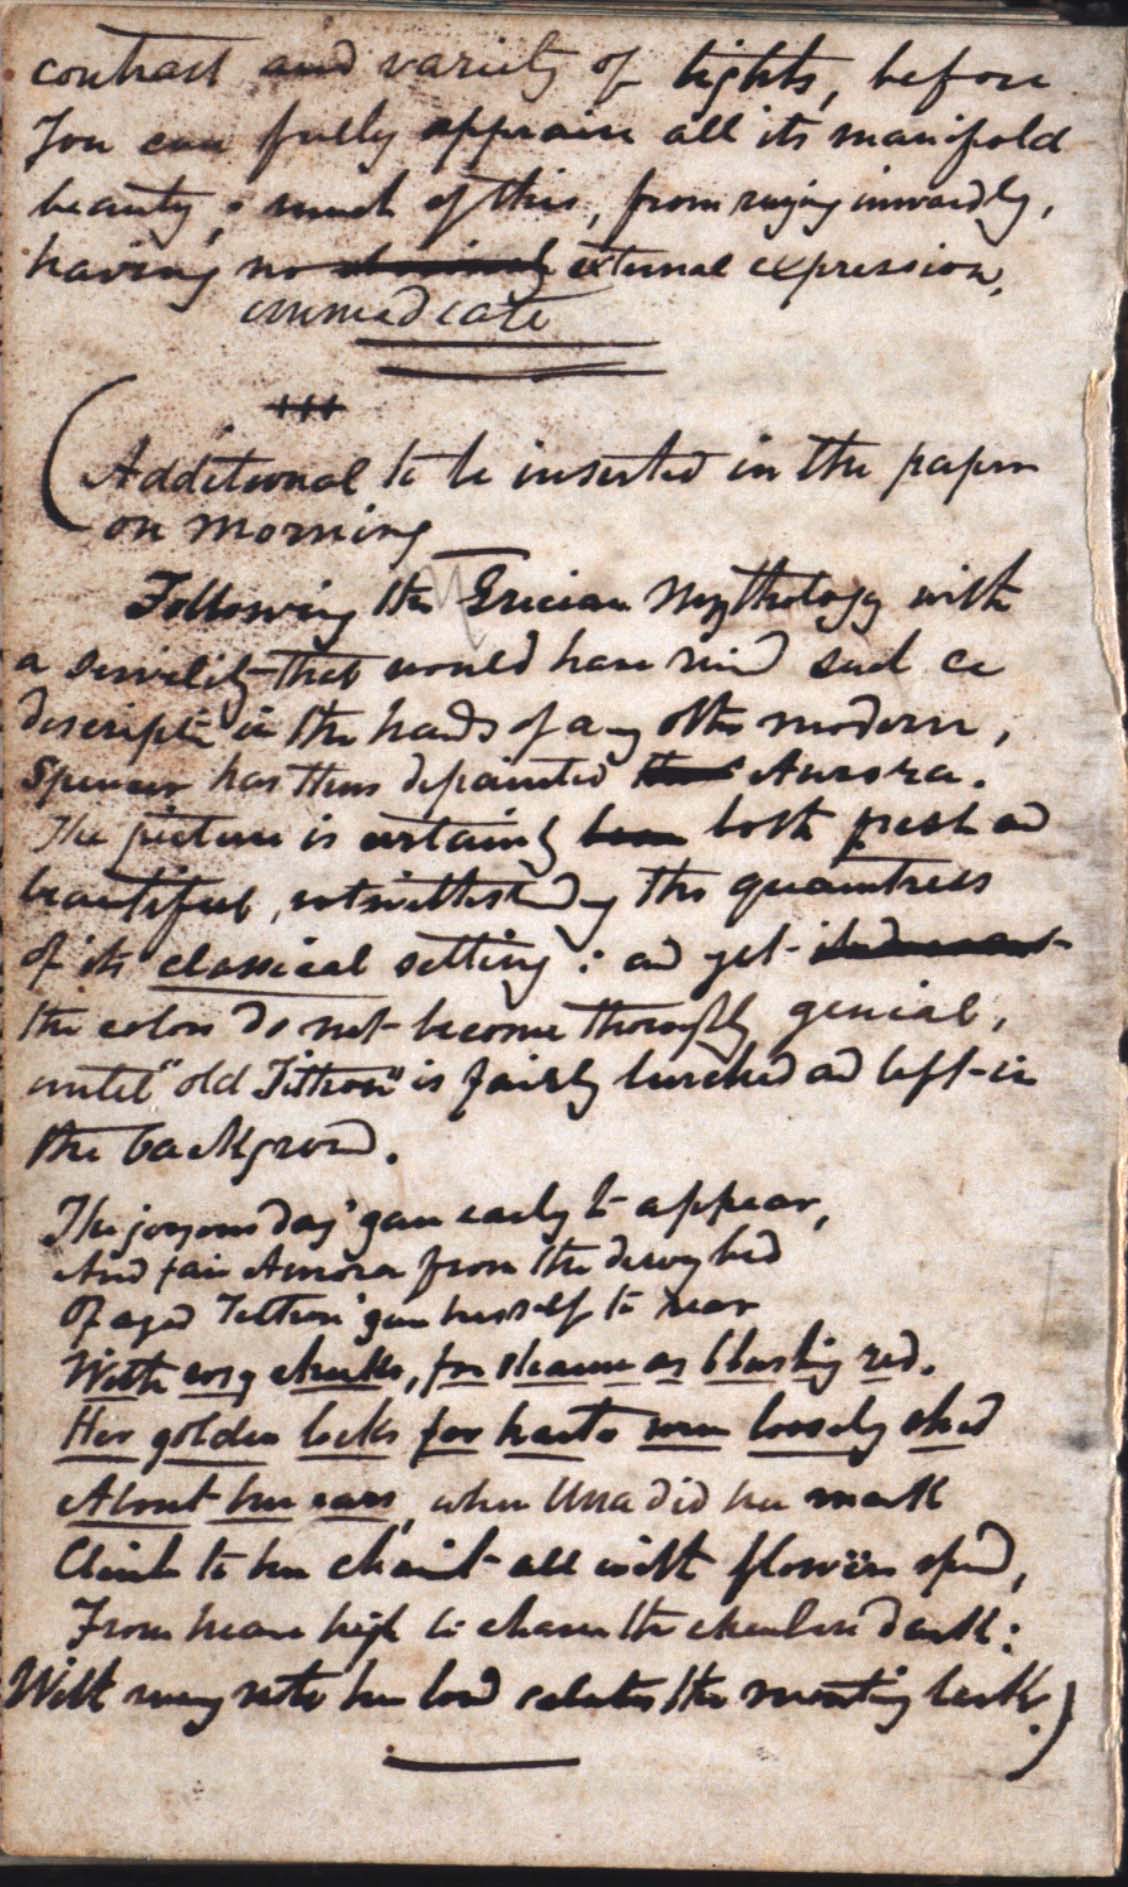 contrast and variety of lights, before
You can fully appraise all its manifold
beauty; much of this, from raying inwardly,
having no external expression,
immediate
+++
(Additional to be inserted in the paper
on morning
Following the Grecian Mythology with
a servility that would have ruined such a
descriptn in the hands of any other modern,
Spenser has thus depainted Aurora.
The picture is certainly both fresh and
beautiful, notwithstanding the quaintness
of its classical setting: and yet
the colors do not become thoroughly genial,
until "old Tithon" is fairly lurched and left in
the background.
The joyous day 'gan early to appear,
And fair Aurora from the dewy bed
Of aged Tithon 'gan herself to rear
With rosy cheeks, for shame as blushing red.
Her golden locks for haste were loosely shed
About her ears, when Una did her mark
Climb to her chariot all with flowers spread,
From heaven high to chase the cheerless dark:
With merry note her loud salutes the mounting lark.)